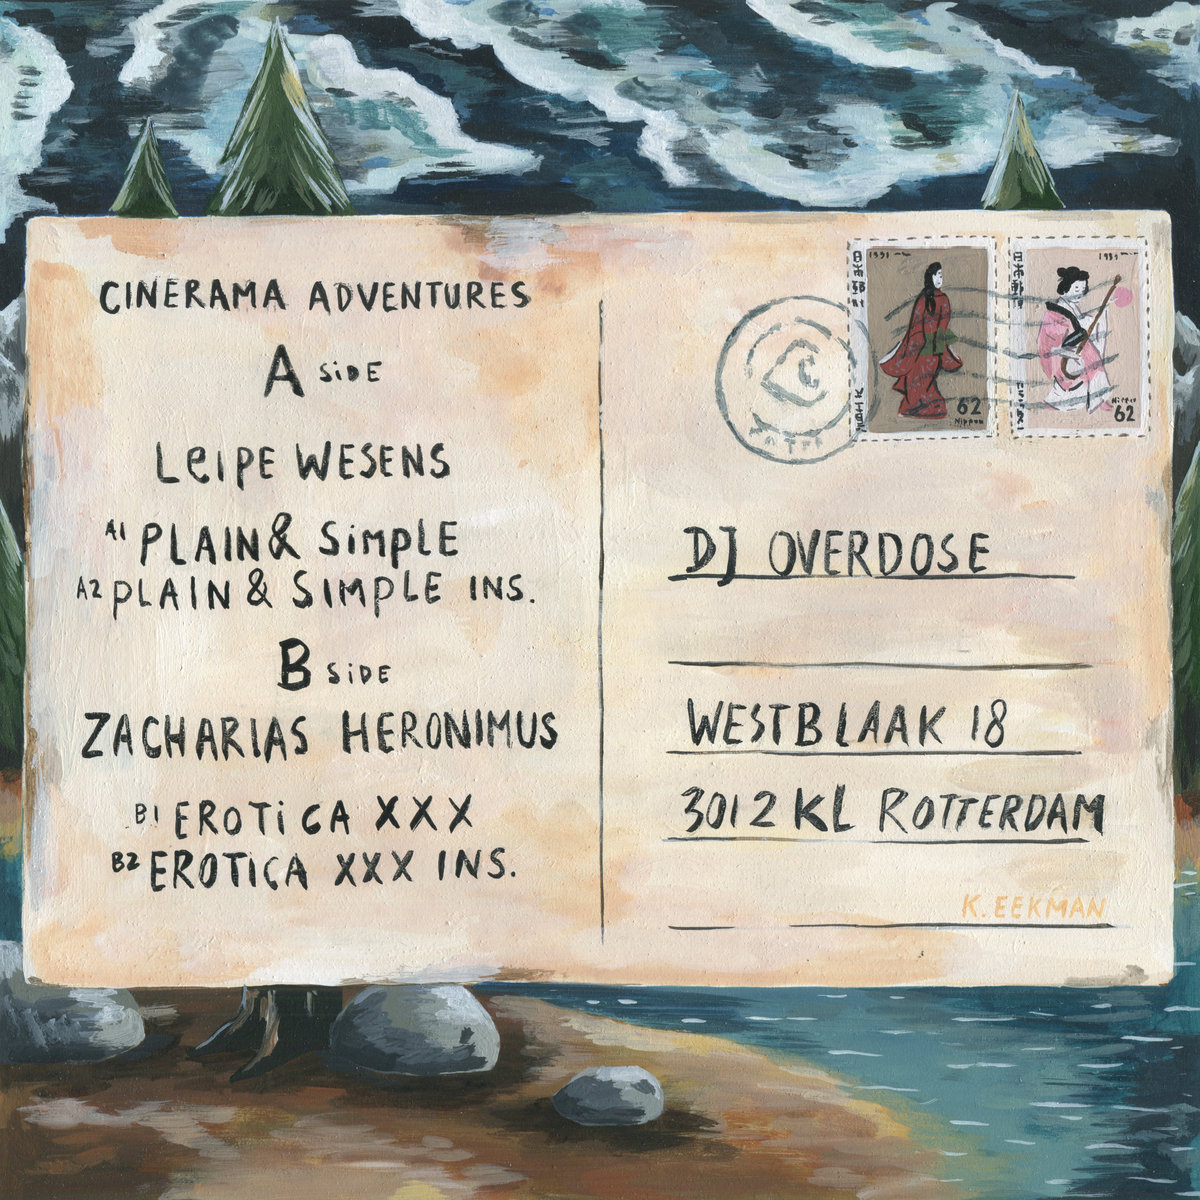 CINERAMA ADVENTURES
A SiDE
LeIPE WESENS
A1 PLAIN & SiMPLE
A2 PLAIN & SIMPLE INS.
B SiDE
ZACHARIAS HERONIMUS
B1 EROTiCA XXX
B2 EROTICA XXX INS.
1991
日本郵便
62
Nippon
日本郵便
1991
Nippon
62
DJ OVERDOSE
WESTBLAAK 18
3012KL ROTTERDAM
K. EEKMAN